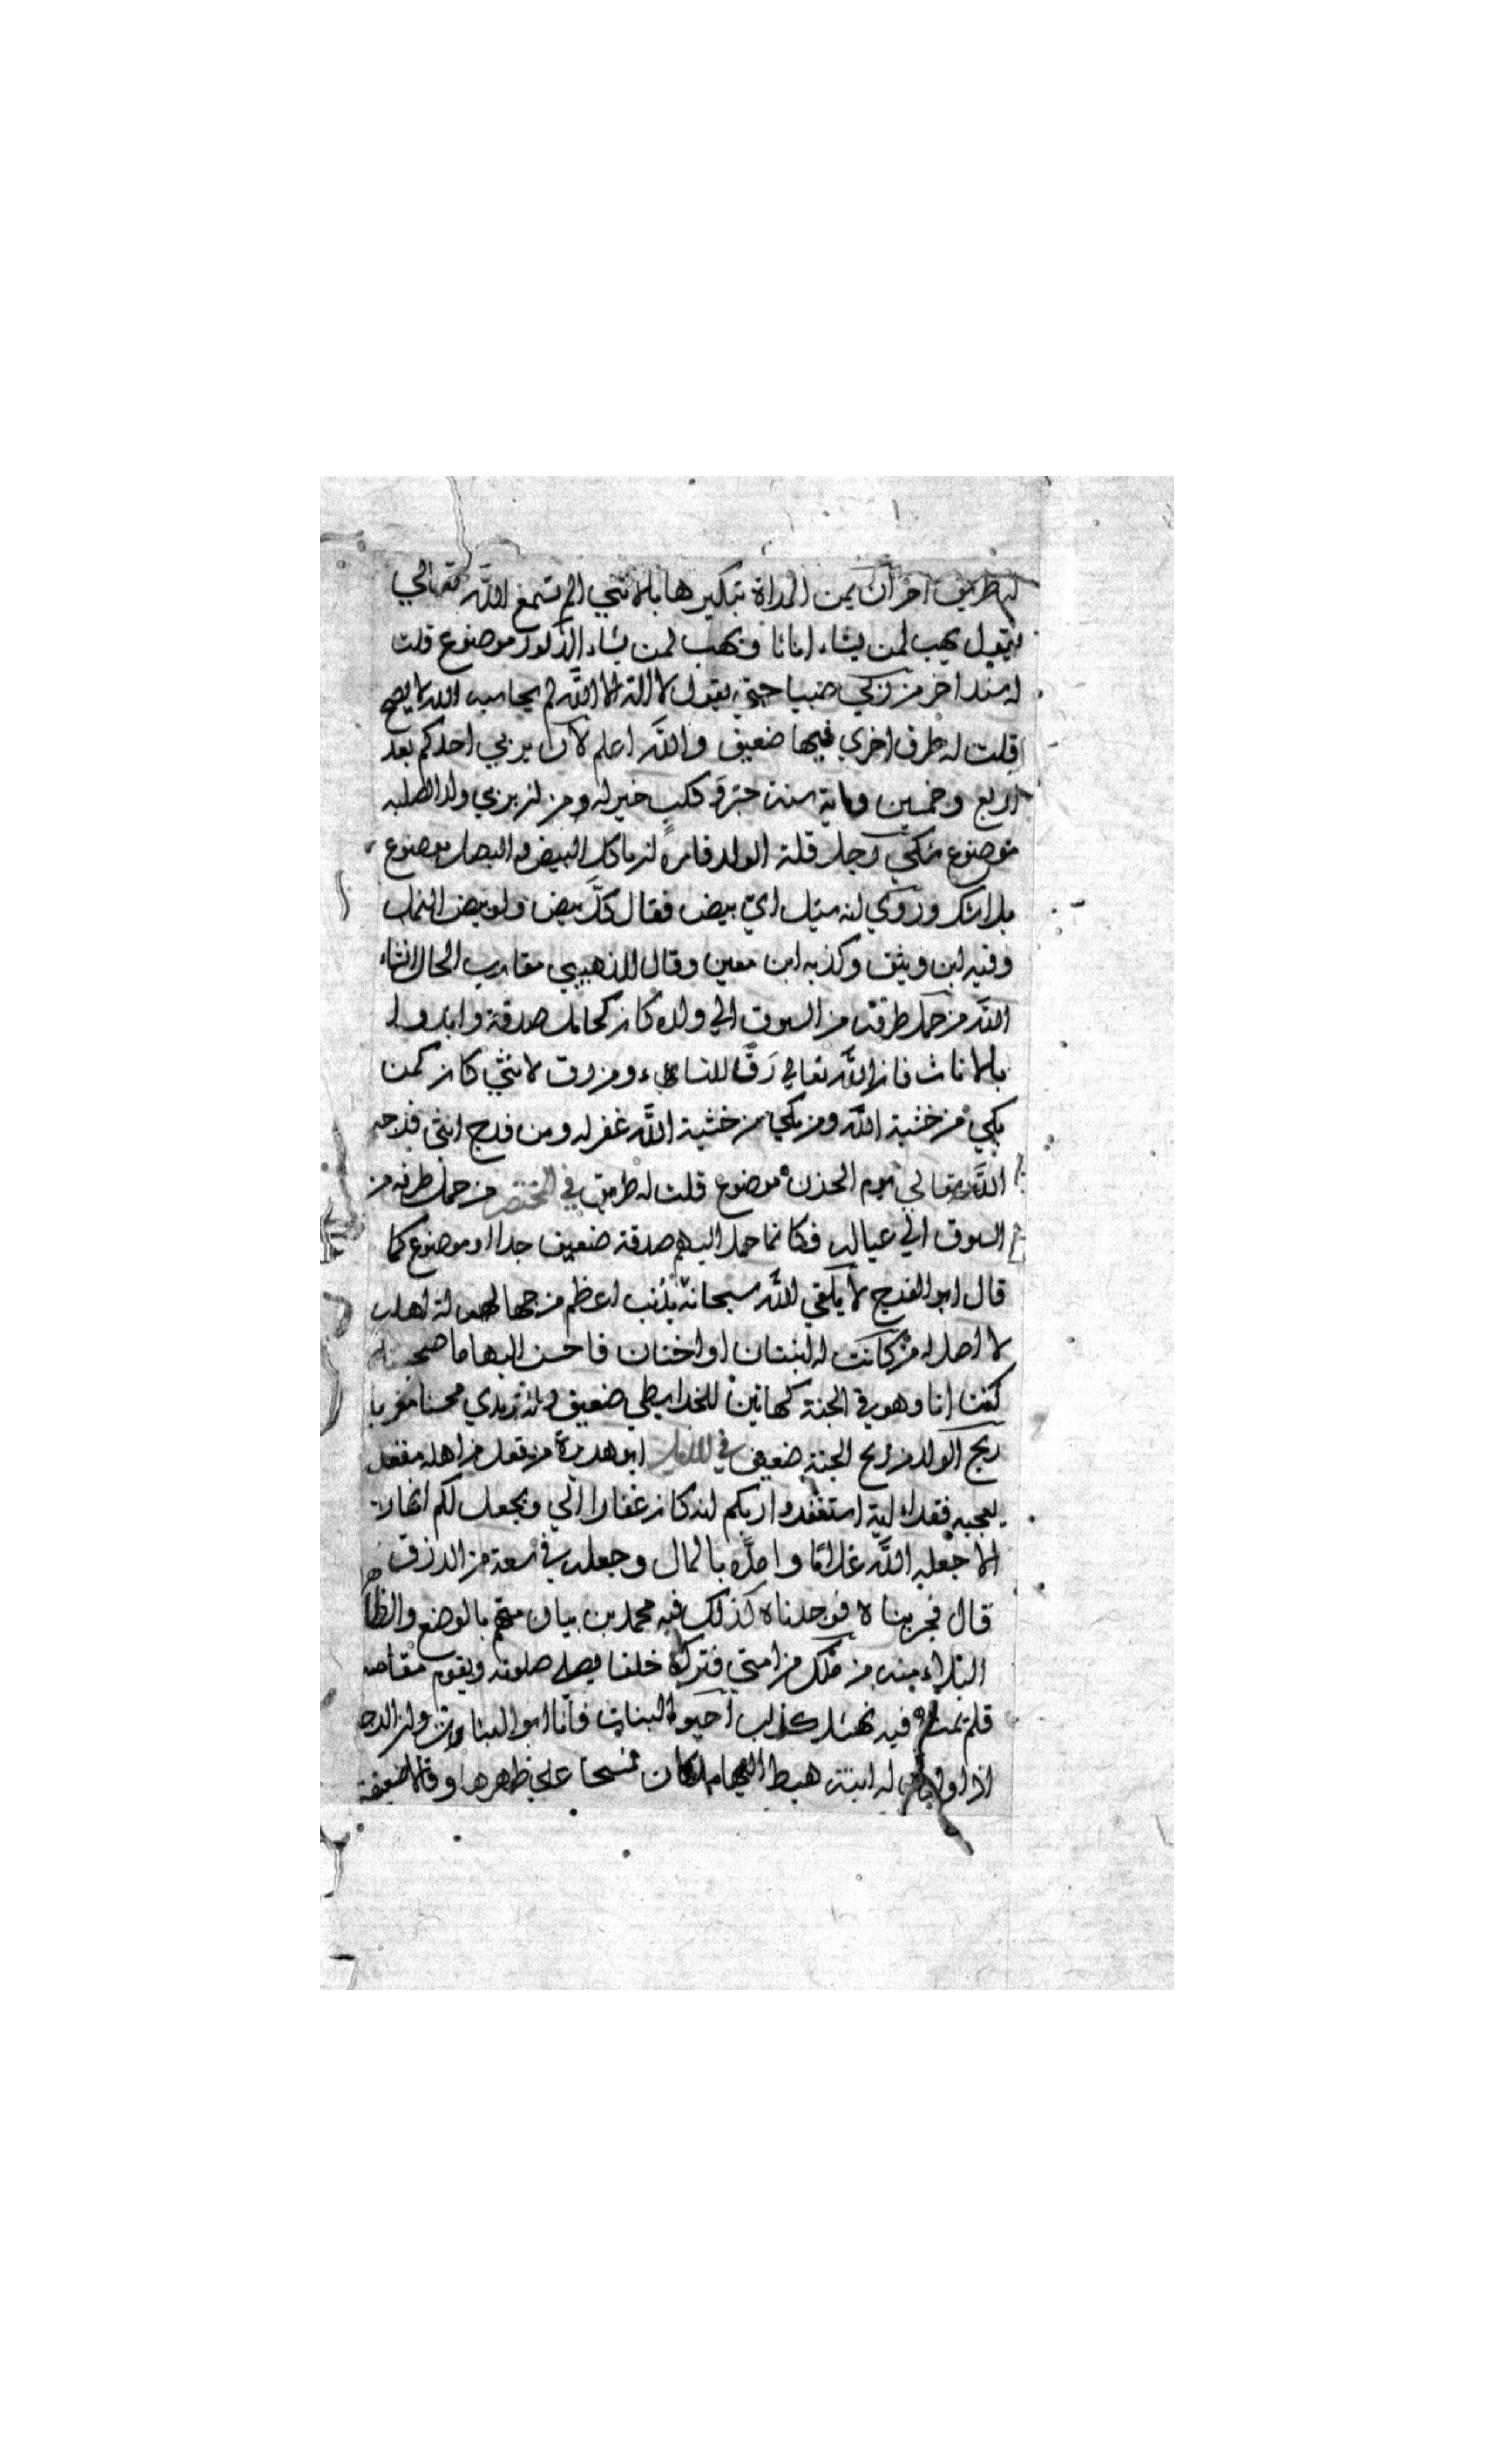 له طريق اخر ان يمن المراة تبكيرها بالانثي الم تسمع الله تعالي
يقول يهب لمن يشاء اناثا ويهب لمن يشاء الذكور موضوع قلت
له سند اخر من ربي صبيا حتي يقول لا اله الا الله لم يحاسبه الله لا يصح
قلت له طرق اخري فيها ضعيف والله اعلم لان يربي احدكم بعد
اربع وخمسين وماية سنة جرو كلب خير له من ان يربي ولدا لصلبه
موضوع شكي رجل قلة الولد فامره ان ياكل البيض والبصل موضوع
بلا شك وروي انه سئل اي بيض فقال كل بيض ولو بيض النمل
وفيه ابن وثيق وكذبه ابن معين وقال الذهبي مقارب الحال انشاء
الله من حمل طرفة من السوق الي ولده كان كحامل صدقة وابدوا
بالاناث فان الله تعالي رق للنساء ومن رق لانثي كان كمن
بكي من خشية الله ومن بكي من خشية الله غفر له ومن فرح انثي فرحه
الله تعالي يوم الحزن موضوع قلت له طريق في المختصر من حمل طرفة من
السوق الي عياله فكانما حمل اليهم صدقة ضعيف جدا او موضوع كما
قال ابو الفرج لا يلقي الله سبحانه بذنب اعظم من جهالة اهله
لا اصل له من كانت له ابنتان او اختان فاحسن اليهما ما صحبتاه
كنت انا وهو في الجنة كهاتين للخرايطي ضعيف وللترمذي محسنا مغربا
ريح الولد من ريح الجنة ضعيف في ابو هريرة من
فقد استغفروا ربكم انه كان غفارا الي ويجعل لكم انهارا
الا جعله الله غلاما وامده بالمال وجعله في سعة من الرزق
قال فجربناه فوجدناه كذلك فيه محمد بن بيان متهم بالوضع
البلاء منه من من امتي فترك خلفا يصلي صلوته ويقوم مقامه
قلم يمت فيه نهشل كذاب احبوا البنات فانا ابو البنات
اذا له ابنة هبط اليها ملكان فمسحا علي ظهرها وقالا ضعيفة